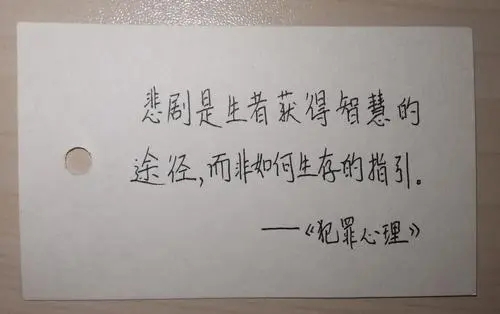 悲剧是生者获得智慧的
途径,而非如何生存的指引。
——《犯罪心理》